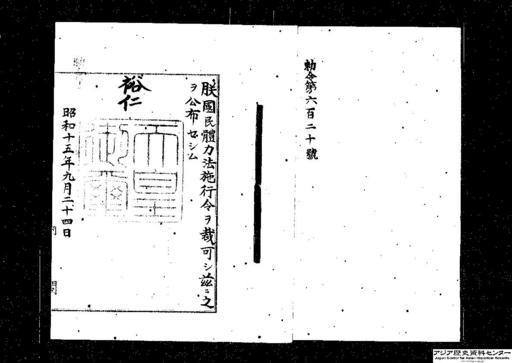 勅令第六百二十號
朕國民體力法施行令ヲ裁可シ茲ニ之
ヲ公布セシム
裕仁
天皇御璽
昭和十五年九月二十四日
アジア歴史資料センター
Japan Center for Asian Historical Records